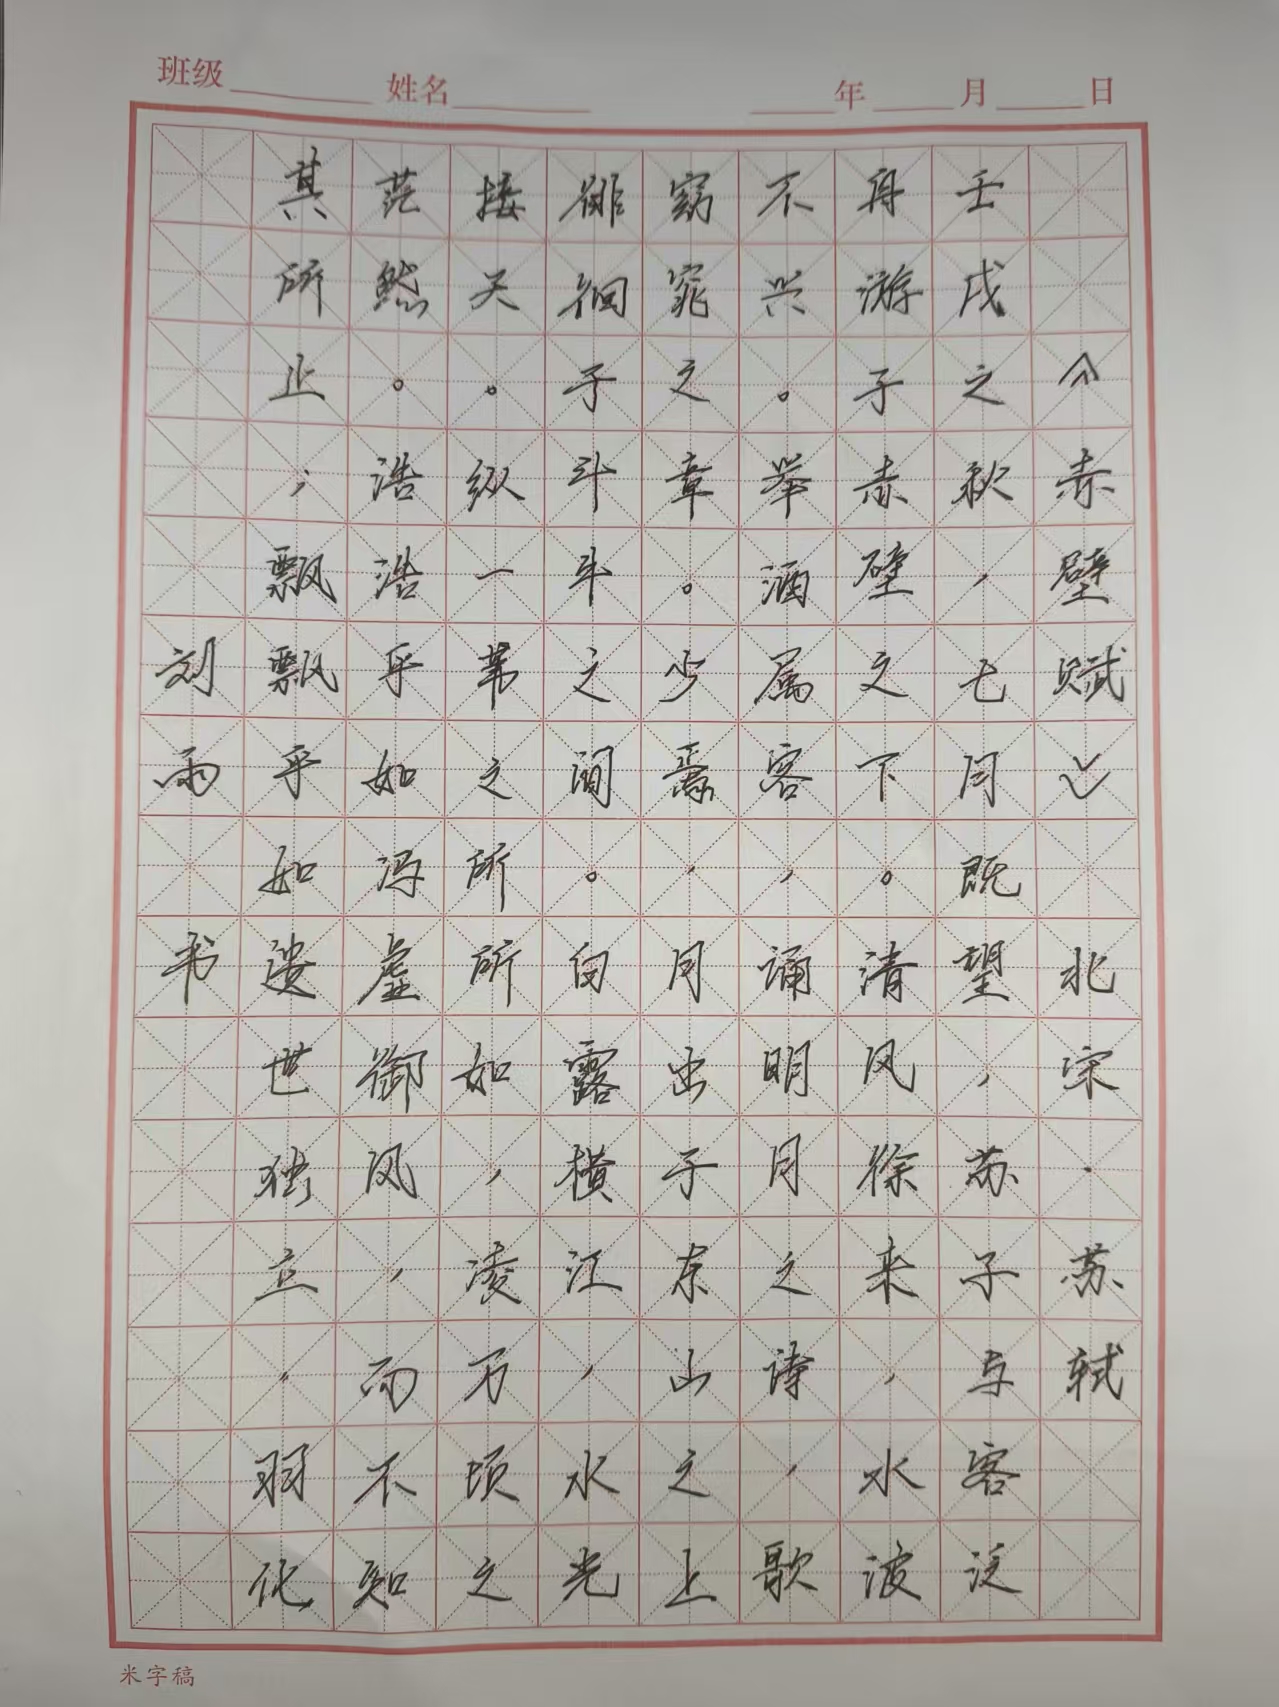 班级 姓名 年 月 日
《赤壁赋》 北宋·苏轼
壬戌之秋,七月既望,苏子与客泛
舟游于赤壁之下。清风徐来,水波
不兴。举酒属客,诵明月之诗,歌
窈窕之章。少焉,月出于东山之上
徘徊于斗牛之间。白露横江,水光
接天。纵一苇之所所如,凌万顷之
茫然。浩浩乎如冯虚御风,而不知
其所止;飘飘乎如遗世独立,羽化
刘雨 书
米字稿